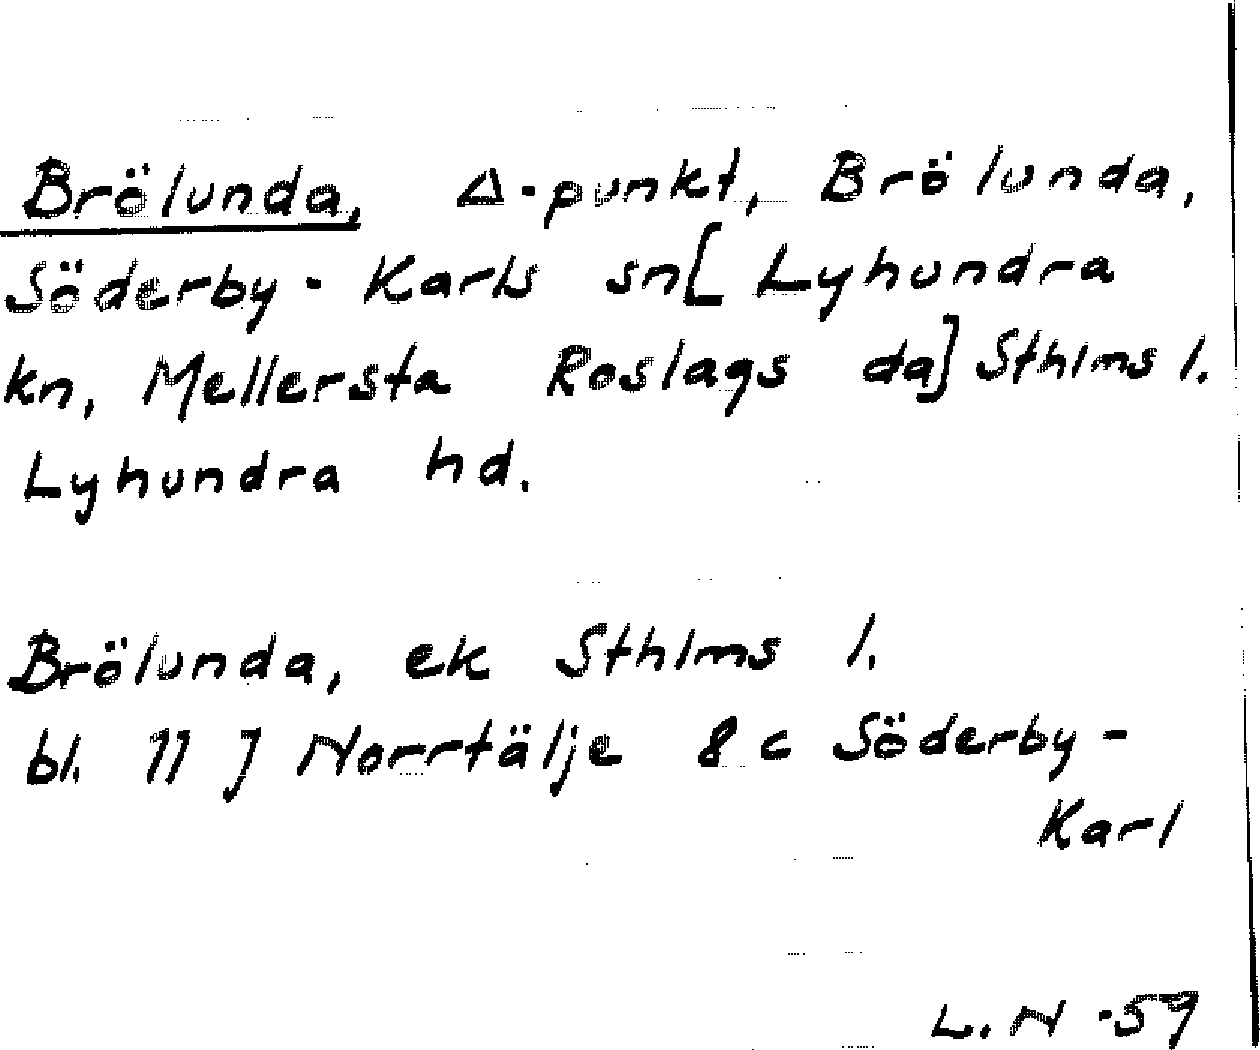 Brölunda, Δ-punkt, Brölunda,
Söderby - Karls sn [ Lyhundra
kn, Mellersta Roslags da] Sthlms l.
Lyhundra hd.
Brölunda, ek Sthlms l.
bl. 11 J Norrtälje 8 c Söderby -
Karl
L. N -59